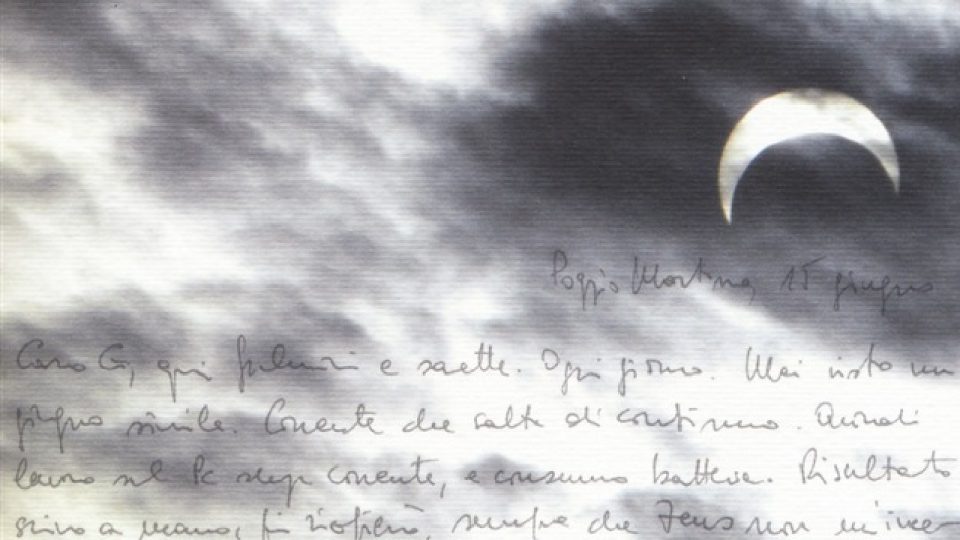 Poggio Martino, 15 giugno
Caro G, qui fulmini e saette. Ogni giorno. Mai visto un
giugno simile. Corrente che salta di continuo. Quindi
lavoro sul Pc senza corrente, e consumo batteria. Risultato
scrivo a mano, sempre che Zeus non m'ince-